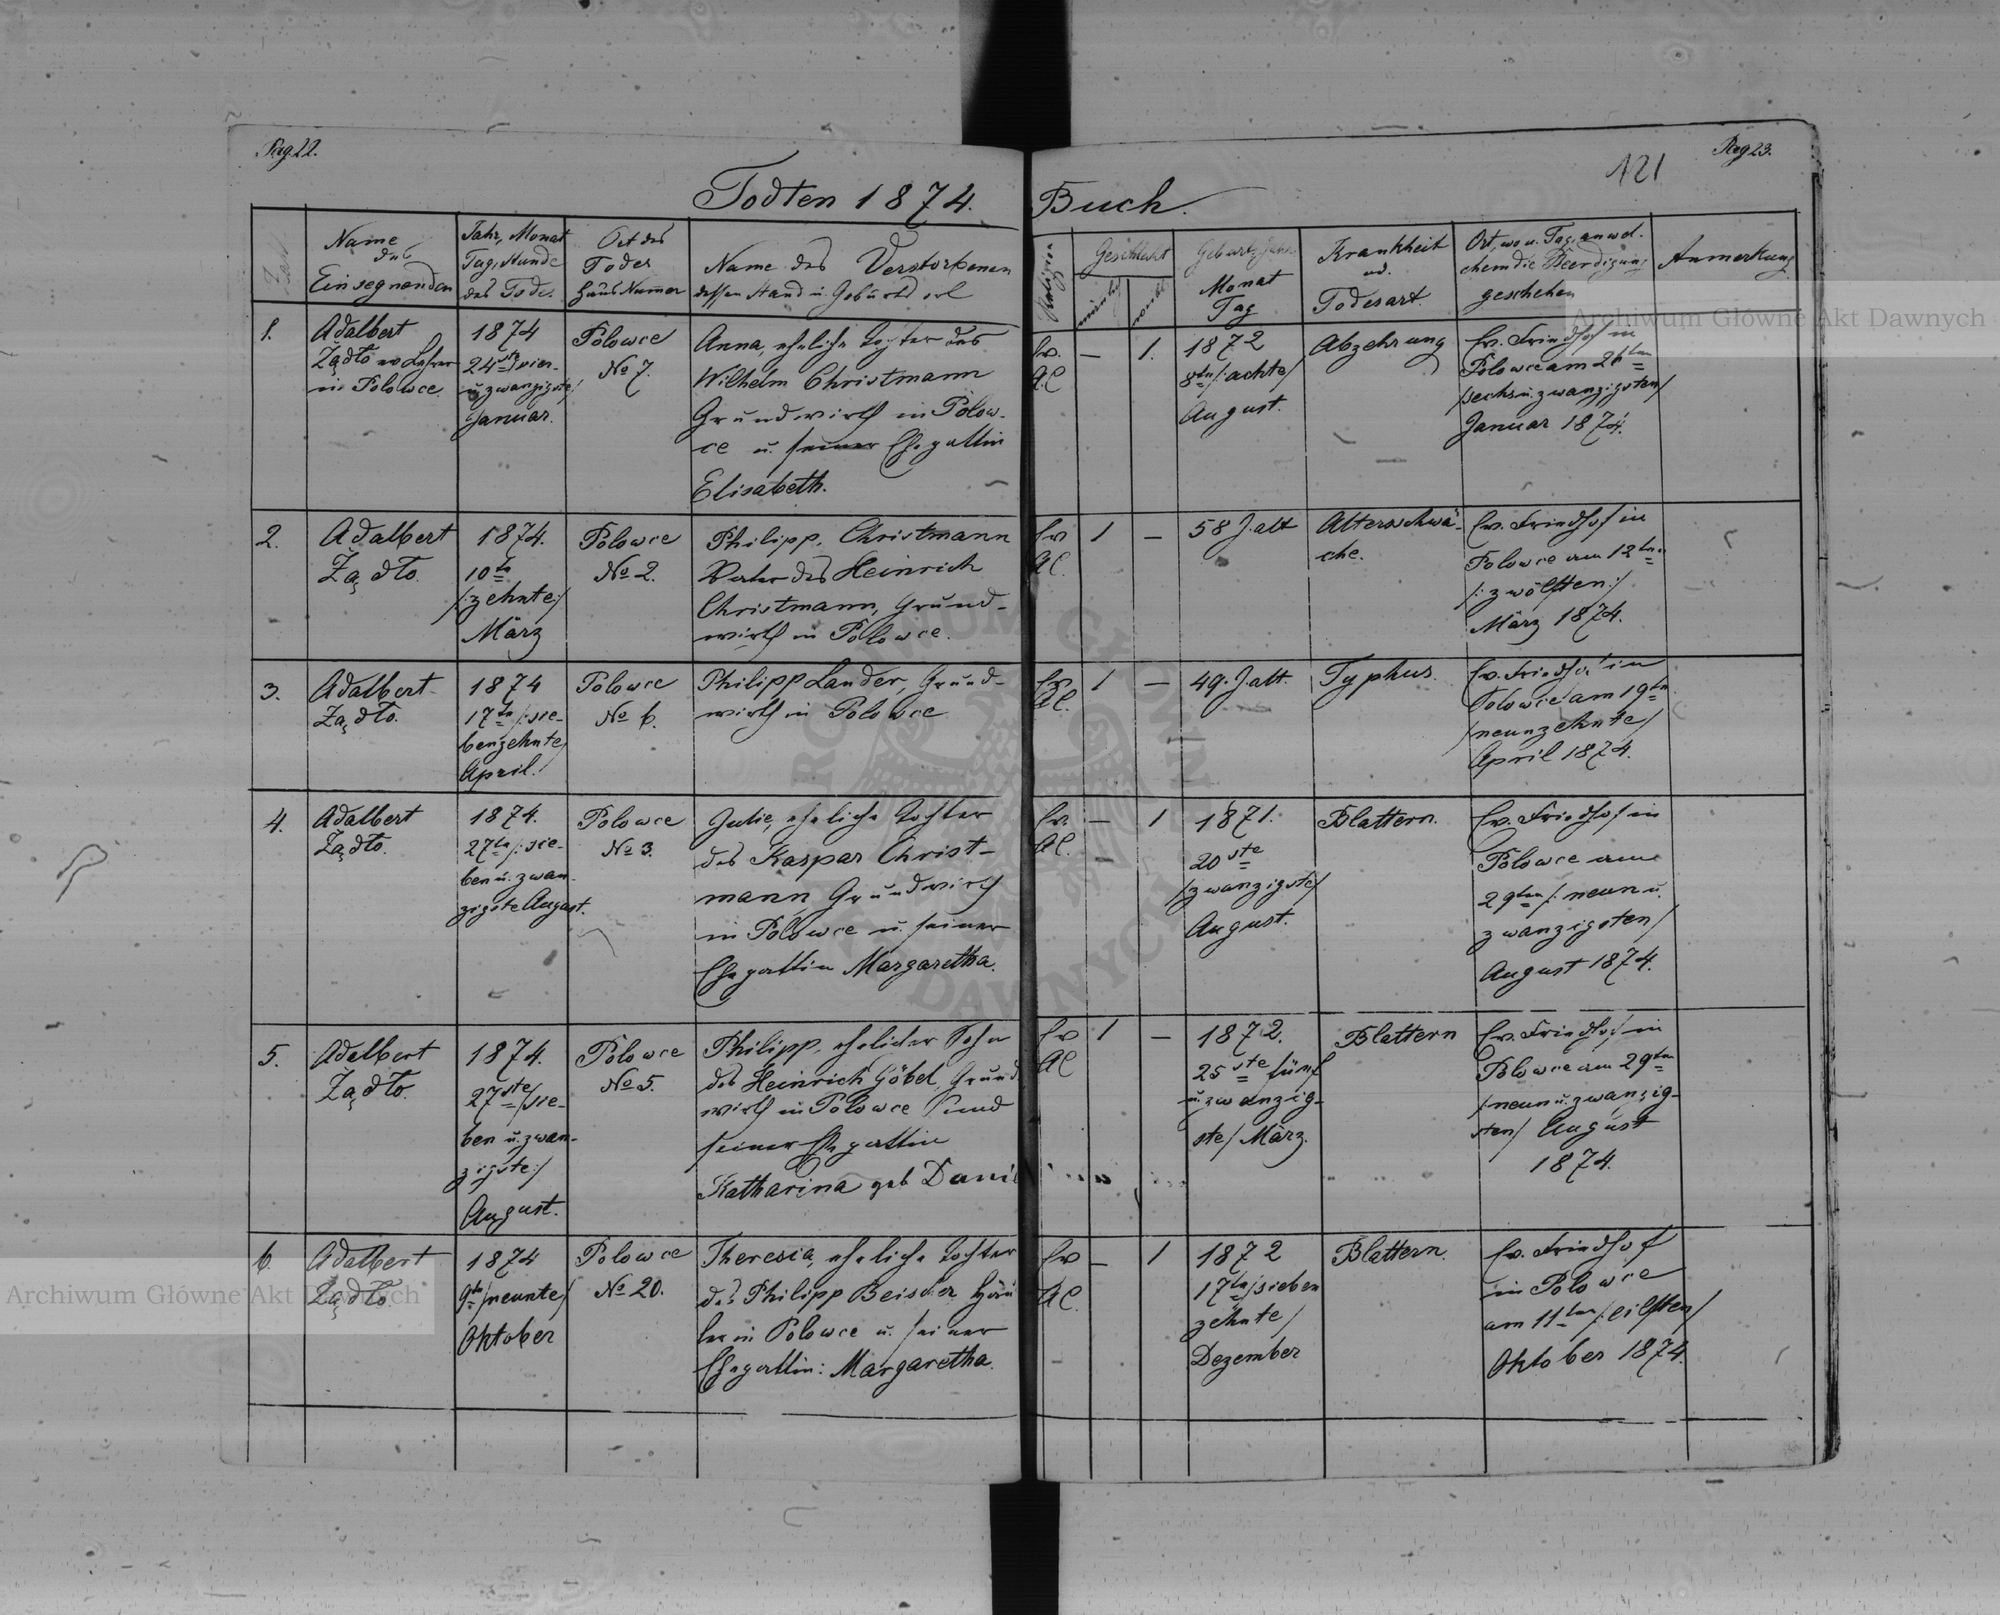 Pag 22.
Pag 23.
121
Todten 1874. Buch.
Zahl
Name
des
Einsegnenden
Jahr, Monat
Tag, Stunde
des Todes.
Ort des
Todes
Haus Numer
Name des Verstorbenen
dessen Stand u. Geburts
Religion
Geschlecht
männl.
weibl.
Geburtsjahr
Monat
Tag
Krankheit
od.
Todesart.
Ort, wo u. Tag, an wel-
chem die Beerdigung
geschehen
Anmerkung
1.
Adalbert
Ządło ev Lehrer
in Polowce
1874
24ste /vier-
u. zwanzigste/
Januar.
Polowce
No 7.
Anna, eheliche Tochter des
Wilhelm Christmann
Grundwirth in Polow-
ce u. seiner Ehegattin
Elisabeth.
Ev.
A.C
—
1.
1872
8te /:achte/
August.
Abzehrung
Ev. Friedhof in
Polowce am 26ten
/sechs u. zwanzigsten/
Januar 1874.
2.
Adalbert
Ządło.
1874.
10te
/:zehnte:/
März
Polowce
No 2.
Philipp, Christmann
Vater des Heinrich
Christmann, Grund-
wirth in Polowce.
Ev
AC.
1
—
58 J. alt
Altersschwä-
che.
Ev. Friedhof in
Polowce am 12ten
/:zwölften:/
März 1874.
3.
Adalbert
Ządło.
1874
17te /:sie-
benzehnte/
April.
Polowce
No 6.
Philipp Lander, Grund-
wirth in Polowce
Ev.
AC.
1
—
49. J. alt.
Typhus.
Ev. Friedhof in
Polowce am 19ten
/neunzehnte/
April 1874.
4.
Adalbert
Ządło.
1874.
27te /:sie-
ben u. zwan-
zigste August.
Polowce
No 3.
Julie, eheliche Tochter
des Kaspar Christ-
mann Grundwirth
in Polowce u. seiner
Ehegattin Margaretha.
Ev.
AC.
—
1
1871.
20ste
/zwanzigste/
August.
Blattern.
Ev. Friedhof in
Polowce am
29ten /: neun u.
zwanzigsten/
August 1874.
5.
Adalbert
Ządło.
1874.
27ste /sie-
ben u. zwan-
zigste:/
August.
Polowce
No 5.
Philipp, ehelicher Sohn
des Heinrich Göbel, Grund
wirth in Polowce und
seiner Ehegattin
Katharina geb
Ev
AC
1
—
1872.
25ste fünf
u. zwanzig-
ste/ März.
Blattern
Ev. Friedhof in
Polowce am 29ten
/:neun u. zwanzig-
sten/ August
1874.
6.
Adalbert
Ządło.
1874
9te /neunte/
Oktober
Polowce
No 20.
Theresia, eheliche Tochter
des Philipp Beischer Häus
ler in Polowce u. seiner
Ehegattin: Margaretha.
Ev
AC.
—
1
1872
17te /sieben
zehnte/
Dezember
Blattern.
Ev. Friedhof
in Polowce
am 11ten /:eilften/
Oktober 1874.
Archiwum Główne Akt Dawnych
Archiwum Główne Akt Dawnych
ARCHIWUM GŁÓWNE AKT DAWNYCH